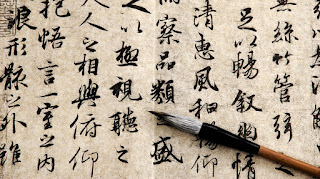 無絲竹管弦之
足以暢敘幽情
清惠風和暢仰
俯察品類盛
以極視聽之
人之相與俯仰
抱悟言一室之內
浪形骸之外雖